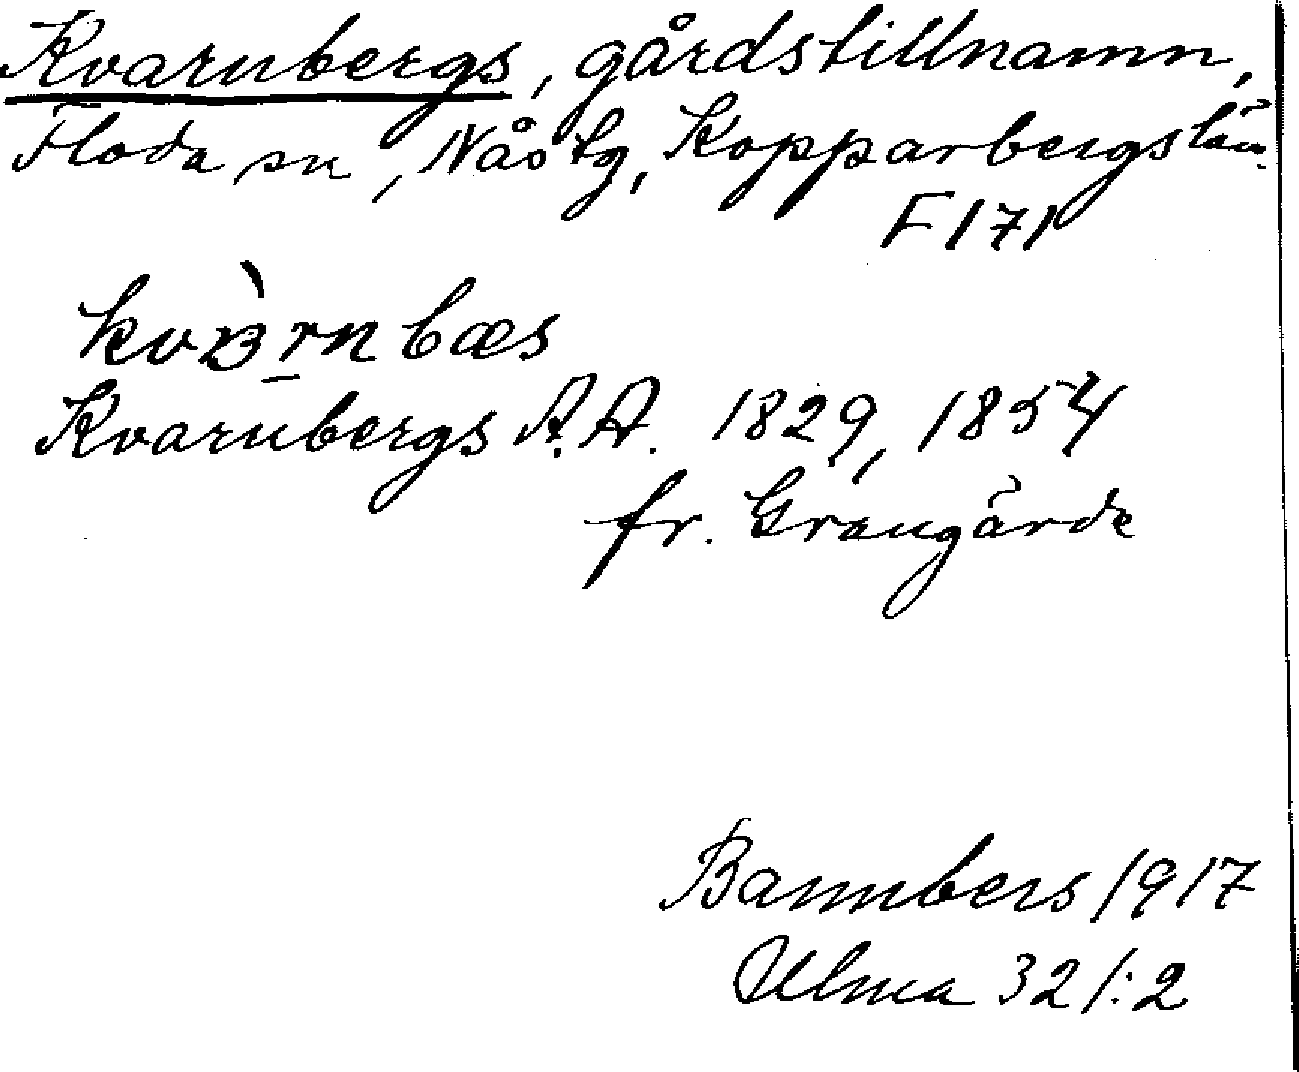 Kvarnbergs, gårdstillnamn,
Floda sn, Nås tg, Kopparbergs län.
F 171
Kvarnbergs A.A. 1829, 1854
fr. Grangärde
Bannbers 1917
Ulma 321:2